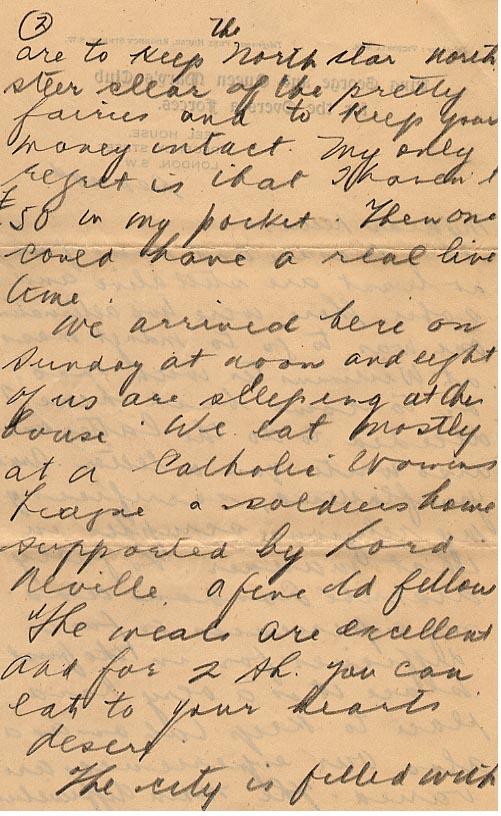 (2)
The
are to keep North star north
steer clear of the pretty
fairies and to keep your
money intact. My only
regret is that I haven't
£50 in my pocket. Then one
could have a real live
time.
We arrived here on
Sunday at noon and eight
of us are sleeping at this
house. We eat mostly
at a Catholic Womens
League a soldiers home
supported by Lord
Neville. a fine old fellow
The meals are excellent
and for 2 sh. you can
eat to your hearts
desert.
The city is filled with